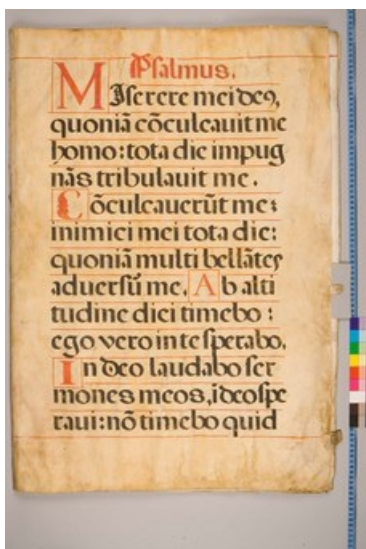 Psalmus.
MIserere mei deꝰ,
quoniã cõculcauit me
homo: tota die impug
nãs tribulauit me.
Cõculcauerũt me:
inimici mei tota die:
quoniã multi bellãtes
aduersũ me. Ab alti
tudine diei timebo:
ego vero in te sperabo.
In deo laudabo ser
mones meos, i deo spe
raui: nõ timebo quid